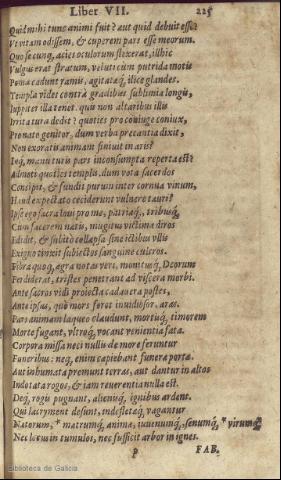 Liber VII. 225
Quid mihi tunc animi fuit? aut quid debuit esse?
Vt vitam odissem, & cuperem pars esse meorum.
Quo se cunq, acies oculorum flexerat, illhic
Vulgus erat stratum, veluti cum putrida motis
Poma cadunt ramis, agitataq; ilice glandes.
Templa vides contra gradibus sublimia longis,
Iuppiter illa tenet. quis non altaribus illis
Irrita tura dedit? quoties pro coniuge coniux,
Pro nato genitor, dum verba precantia dixit,
Non exoratis animam finiuit in aris?
Inq, manu turis pars inconsumpta reperta est?
Admoti quoties templis, dum vota sacerdos
Concipit, & fundit purum inter cornua vinum,
Haud expectato ceciderunt vulnere tauri?
Ipse ego sacra Ioui pro me, patriaq;, tribusq;
Cum facerem natis, mugitus victima diros
Edidit, & subito collapsa sine ictibus vllis
Exiguo tinxit subiectos sanguine cultros.
Fibra quoq, ægra notas veri, monitusq, Deorum
Perdiderat, tristes penetrant ad viscera morbi.
Ante sacros vidi proiecta cadauera postes,
Ante ipsas, quò mors foret inuidiosor, aras.
Pars animam laqueo claudunt, mortisq, timorem
Morte fugant, vltroq; vocant venientia fata.
Corpora missa neci nullis de more feruntur
Funeribus: neq, enim capiebant funera portæ.
Aut inhumata premunt terras, aut dantur in altos
Indotata rogos, & iam reuerentia nulla est.
Deq, rogis pugnant, alienisq, ignibus ardent.
Qui lacryment desunt, indefletæq, vagantur
Natorum, * matrumq, animæ, iuuenumq;, senumq, * virumq;
Nec locus in tumulos, nec sufficit arbor in ignes.
P FAB.
Biblioteca de Galicia